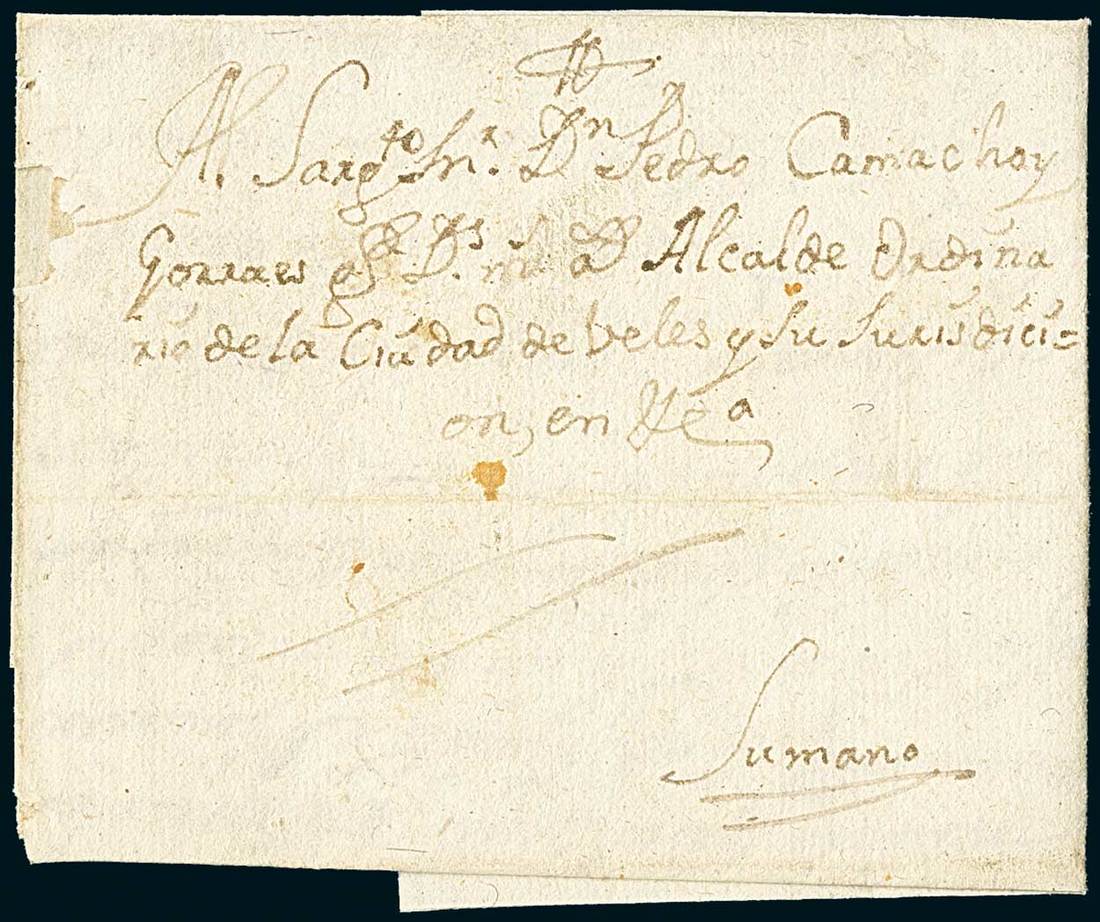 Al Sargto Mr. Dn Pedro Camacho y
Gorraes gde Ds. m a Alcalde Ordina
rio de la Ciudad de Veles y Su Jurisdici=
on, en
Sumano